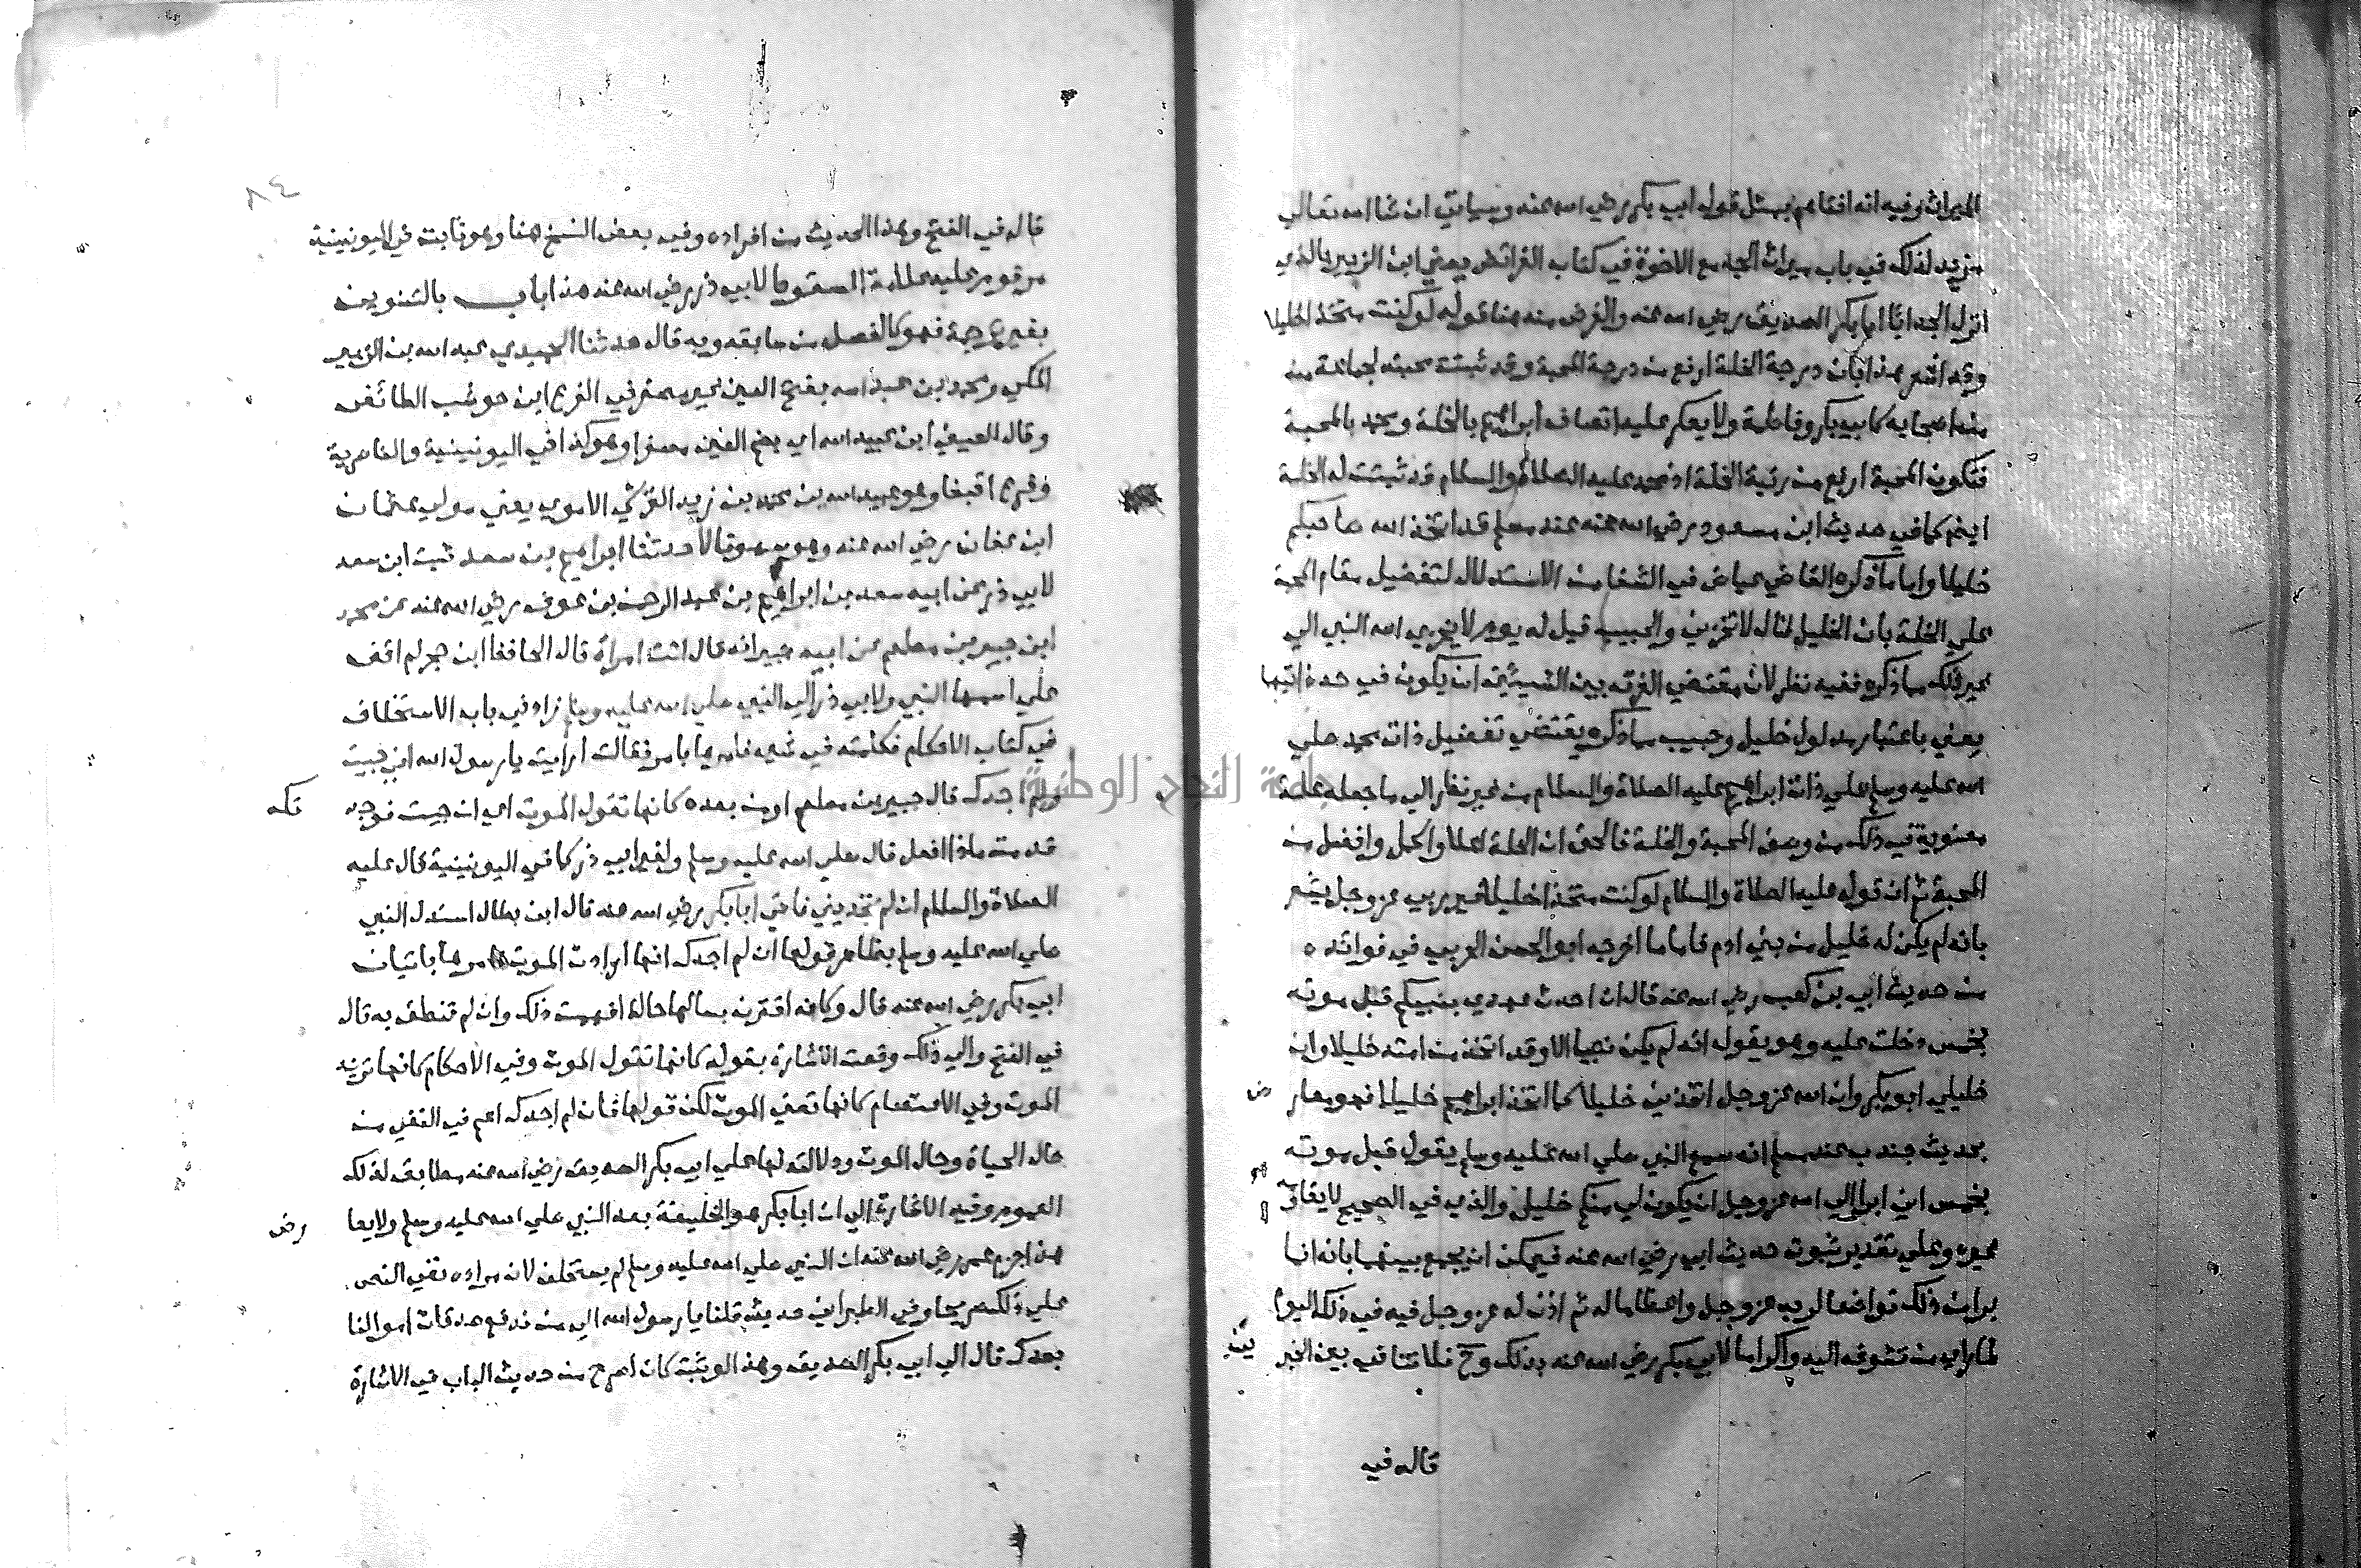 الميراث وفيه انه افتاهم بمثل قول ابي بكر رضي الله عنه وسياتي ان شا الله تعالي
مزيد لذلك في باب ميراث الجد مع الاخوة في كتاب الفرائض يعني ابن الزبير بالذي
انزل الجد ابا ابا بكر الصديق رضي الله عنه والغرض منه هنا قوله لو كنت متخذا خليلا
وقد اشعر هذا بان درجة الخلة ارفع من درجة المحبة وقد ثبتت محبته لجماعة من
من اصحابه كابي بكر وفاطمة ولا يعكر عليه اتصاف ابراهيم بالخلة ومحمد بالمحبة
فتكون المحبة ارفع من رتبة الخلة اذ محمد عليه الصلاة والسلام قد ثبتت له الخلة
ايضا كما في حديث ابن مسعود رضي الله عنه عند مسلم قد اتخذ الله صاحبكم
خليلا واما ما ذكره القاضي عياض في الشفا من الاستدلال لتفضيل مقام المحبة
علي الخلة بان الخليل قال لا تخزني والحبيب قيل له يوم لا يخزي الله النبي الي
غير ذلك مما ذكره ففيه نظر لان مقتضي الفرق بين الشيئين ان يكون في حد ذاتيهما
يعني باعتبار مدلول خليل وحبيب مما ذكره يقتضي تفضيل ذات محمد صلي
الله عليه وسلم علي ذات ابراهيم عليه الصلاة والسلام من غير نظر الي ما جعله علة
معنوية في ذلك من وصف المحبة والخلة فالحق ان الخلة اعلا واكمل وافضل من
المحبة ثم ان قوله عليه الصلاة والسلام لو كنت متخذا خليلا غير ربي عز وجل يشعر
بانه لم يكن له خليل من بني ادم فاما ما اخرجه ابو الحسن الحربي في فوائده
من حديث ابي بن كعب رضي الله عنه قال ان احدث عهدي بنبيكم قبل موته
بخمس دخلت عليه وهو يقول انه لم يكن نبيا الا وقد اتخذ من امته خليلا وان
خليلي ابو بكر وان الله عز وجل اتخذني خليلا كما اتخذ ابراهيم خليلا فهو معار
ض
بحديث جندب عند مسلم انه سمع النبي صلي الله عليه وسلم يقول قبل موته
بخمس اني ابرا الي الله عز وجل ان يكون لي منكم خليل والذي في الصحيح لا يقا
غيره وعلي تقدير ثبوت حديث ابي رضي الله عنه فيمكن ان يجمع بينهما بانه انما
بري من ذلك تواضعا لربه عز وجل واعظاما له ثم اذن له عز وجل فيه في ذلك اليوم
لما راي من تشوقه اليه واكراما لابي بكر رضي الله عنه بذلك وح فلا تنافي بين الخبر
ين
قاله في
٨٤
قاله في الفتح وهذا الحديث من افراده وفي بعض النسخ هنا وهو ثابت في اليونينية
مرقوم عليه علامة السقوط لابي ذر رضي الله عنه هذا باب بالتنوين
بغير ترجمة فهو كالفصل من سابقه وبه قال حدثنا الحميدي عبد الله بن الزبير
المكي ومحمد بن عبد الله بفتح العين غير مصغر في الفرع ابن حوشب الطائفي
وقال العيني ابن عبيد الله اي بضم العين مصغرا وهو كذا في اليونينية والناصرية
وفرع اقبغا وهو عبيد الله بن محمد بن زيد القرشي الاموي يعني مولي عثمان
ابن عفان رضي الله عنه وهو سهو قالا حدثنا ابراهيم بن سعد ثبت ابن سعد
لابي ذر عن ابيه سعد بن ابراهيم بن عبد الرحمن بن عوف رضي الله عنه عن محمد
ابن جبير بن مطعم عن ابيه جبير انه قال اتت امراة قال الحافظ ابن حجر لم اقف
علي اسمها النبي ولابي ذر الي النبي صلي الله عليه وسلم زاد في باب الاستخلاف
في كتاب الاحكام فكلمته في شيء فامرها بامر فقالت ارايت يا رسول الله ان جيت
ولم اجدك قال جبير بن مطعم او من بعده كانها تقول الموت اي ان جيت فوجد
تك
قد مت ماذا افعل قال صلي الله عليه وسلم ولغير ابي ذر كما في اليونينية قال عليه
الصلاة والسلام ان لم تجديني فاتي ابا بكر رضي الله عنه قال ابن بطال استدل النبي
صلي الله عليه وسلم بظاهر قولها ان لم اجدك انها ارادت الموت فامرها باتيان
ابي بكر رضي الله عنه قال وكانه اقترن بسالها حالة افهمت ذلك وان لم تنطق به قال
في الفتح والي ذلك وقعت الاشارة بقوله كانها تقول الموت وفي الاحكام كانها تريد
الموت وفي الاعتصام كانها تعني الموت لكن قولها فان لم اجدك اعم في النفي من
حال الحياة وحال الموت ودلالته لها علي ابي بكر الصديق رضي الله عنه مطابق لذلك
العموم وفيه الاشارة الي ان ابا بكر هو الخليفة بعد النبي صلي الله عليه وسلم ولا يعا
رض
هذا جزم عمر رضي الله عنه ان النبي صلي الله عليه وسلم لم يستخلف لان مراده نفي النص
علي ذلك صريحا وفي الطبراني حديث قلنا يا رسول الله الي من ندفع صدقات اموالنا
بعدك قال الي ابي بكر الصديق وهذا لو ثبت كان اصرح من حديث الباب في الاشارة
جامعة النجاح الوطنية